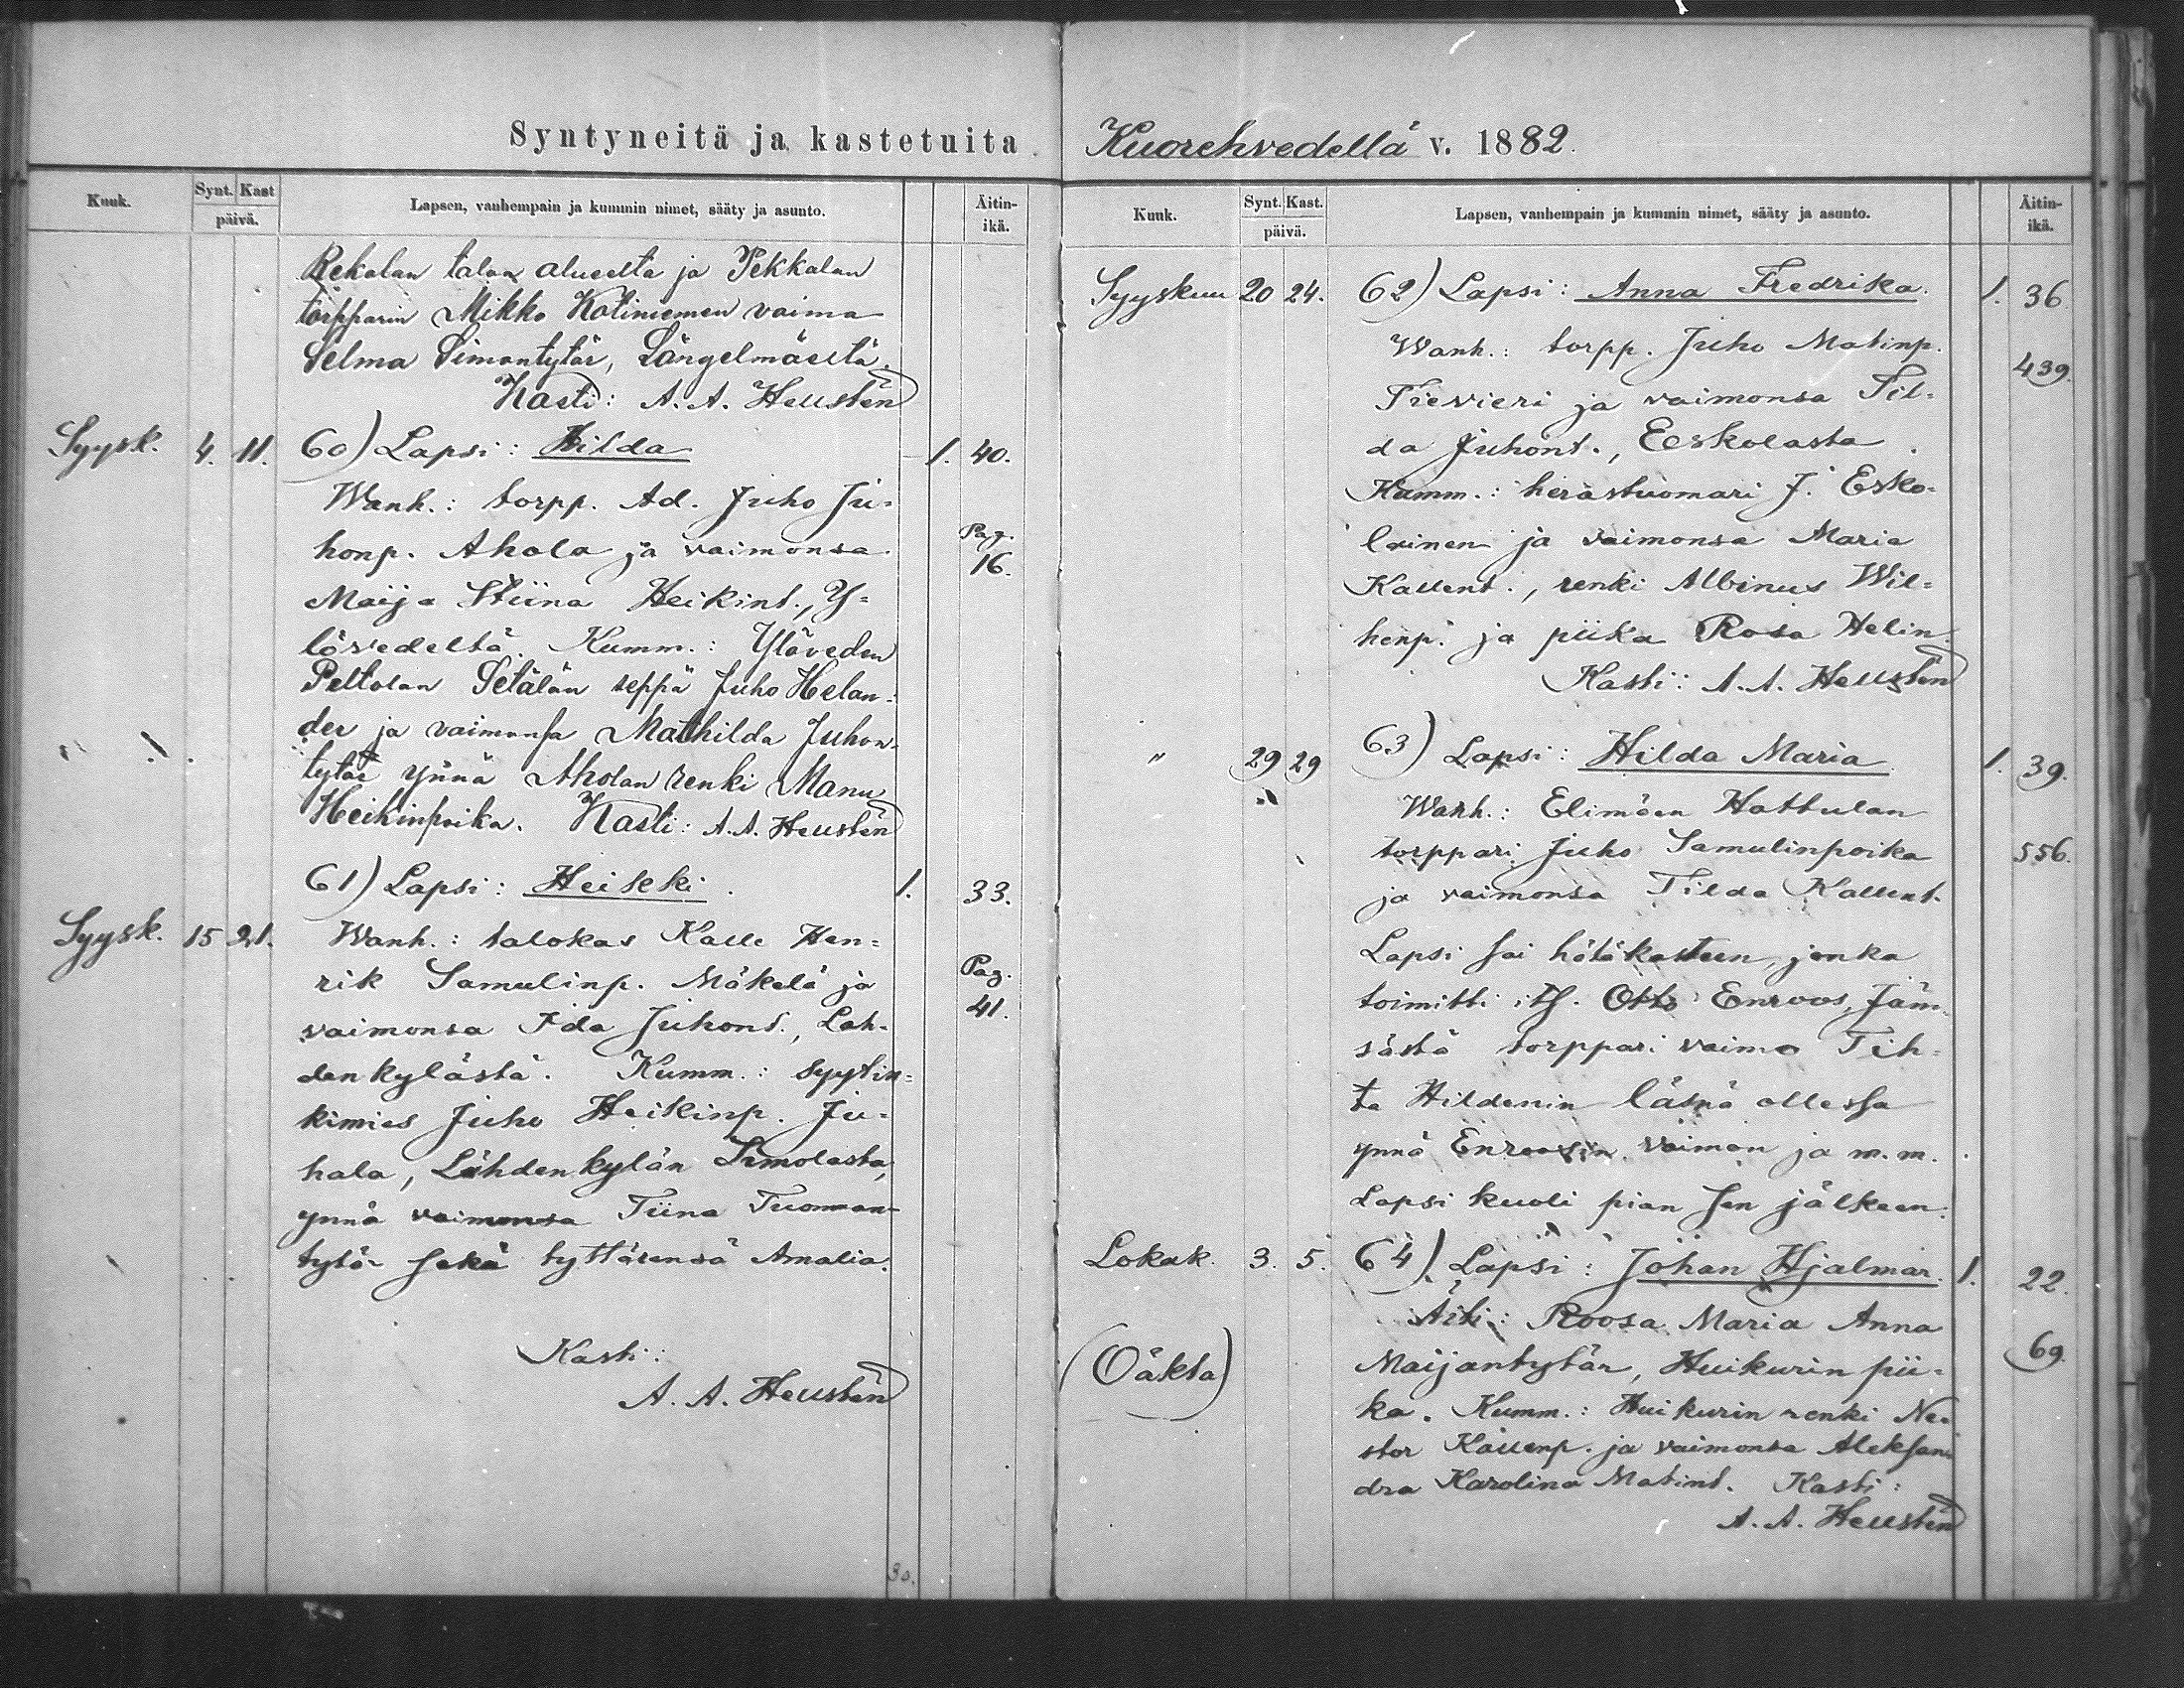 Syntyneitä ja kastetuita
Kuuk.
Synt. Kast
päivä.
Lapsen, vanhempain ja kummin nimet, sääty ja asunto.
Äitin-
ikä.
Rekolan talon alueelta ja Pekkalan
torpparin Mikko Kotiniemen vaimo
Selma Simontytär, Längelmäeltä.
Kasti: A. A. Heusten
Syysk. 4. 11. 60) Lapsi: Hilda 1. 40.
Wanh.: torpp. Ad. Juho Ju-
honp. Ahola ja vaimonsa Pag.
16.
Maija Stiina Heikint., Y-
lövedeltä. Kumm.: Ylöveden
Peltolan Setälän seppä Juho Helan-
der ja vaimonsa Mathilda Juhon-
tytär ynnä Aholan renki Manu
Heikinpoika. Kasti: A. A. Heusten
61) Lapsi: Heikki. 1. 33.
Syysk. 15 21. Wanh.: talokas Kalle Hen-
rik Samulinp. Mäkelä ja Pag.
vaimonsa Ida Juhont., Lah- 41.
denkylästä. Kumm.: syytin-
kimies Juho Heikinp. Ju-
hala, Lahdenkylän Simolasta,
ynnä vaimonsa Tiina Tuoman-
tytär sekä tyttärensä Amalia.
Kasti:
A. A. Heusten
30.
Kuorehvedellä v. 1882.
Kuuk.
Synt. Kast.
päivä.
Lapsen, vanhempain ja kummin nimet, sääty ja asunto.
Äitin-
ikä.
Syyskuu 20 24. 62) Lapsi: Anna Fredrika. 1. 36
Wanh.: torpp. Juho Matinp. 439.
Frevieri ja vaimonsa Til-
da Juhont., Eeskolasta.
Kumm.: herastuomari J. Esko-
lainen ja vaimonsa Maria
Kallent., renki Albinus Wil-
henp. ja piika Rosa Helin.
Kasti: A. A. Heusten
" 29 29 63) Lapsi: Hilda Maria 1. 39.
Wanh.: Elimäen Hattulan
torppari Juho Samulinpoika 556.
ja vaimonsa Tilda Kallent.
Lapsi sai hätäkasteen, jonka
toimitti its. Otto Enroos, Jäm-
sästä torppari vaimo Tih-
ta Hildenin läsnä ollessa
ynnä Enroosin vaimon ja m. m.
Lapsi kuoli pian sen jälkeen.
Lokak. 3. 5. 64) Lapsi: Johan Hjalmar. 1. 22.
Äiti: Roosa Maria Anna
(Oäkta) Maijantytär, Huikurin pii- 69.
ka. Kumm.: Huikurin renki Ne-
stor Kallenp. ja vaimonsa Aleksan-
dra Karolina Matint. Kasti:
A. A. Heusten